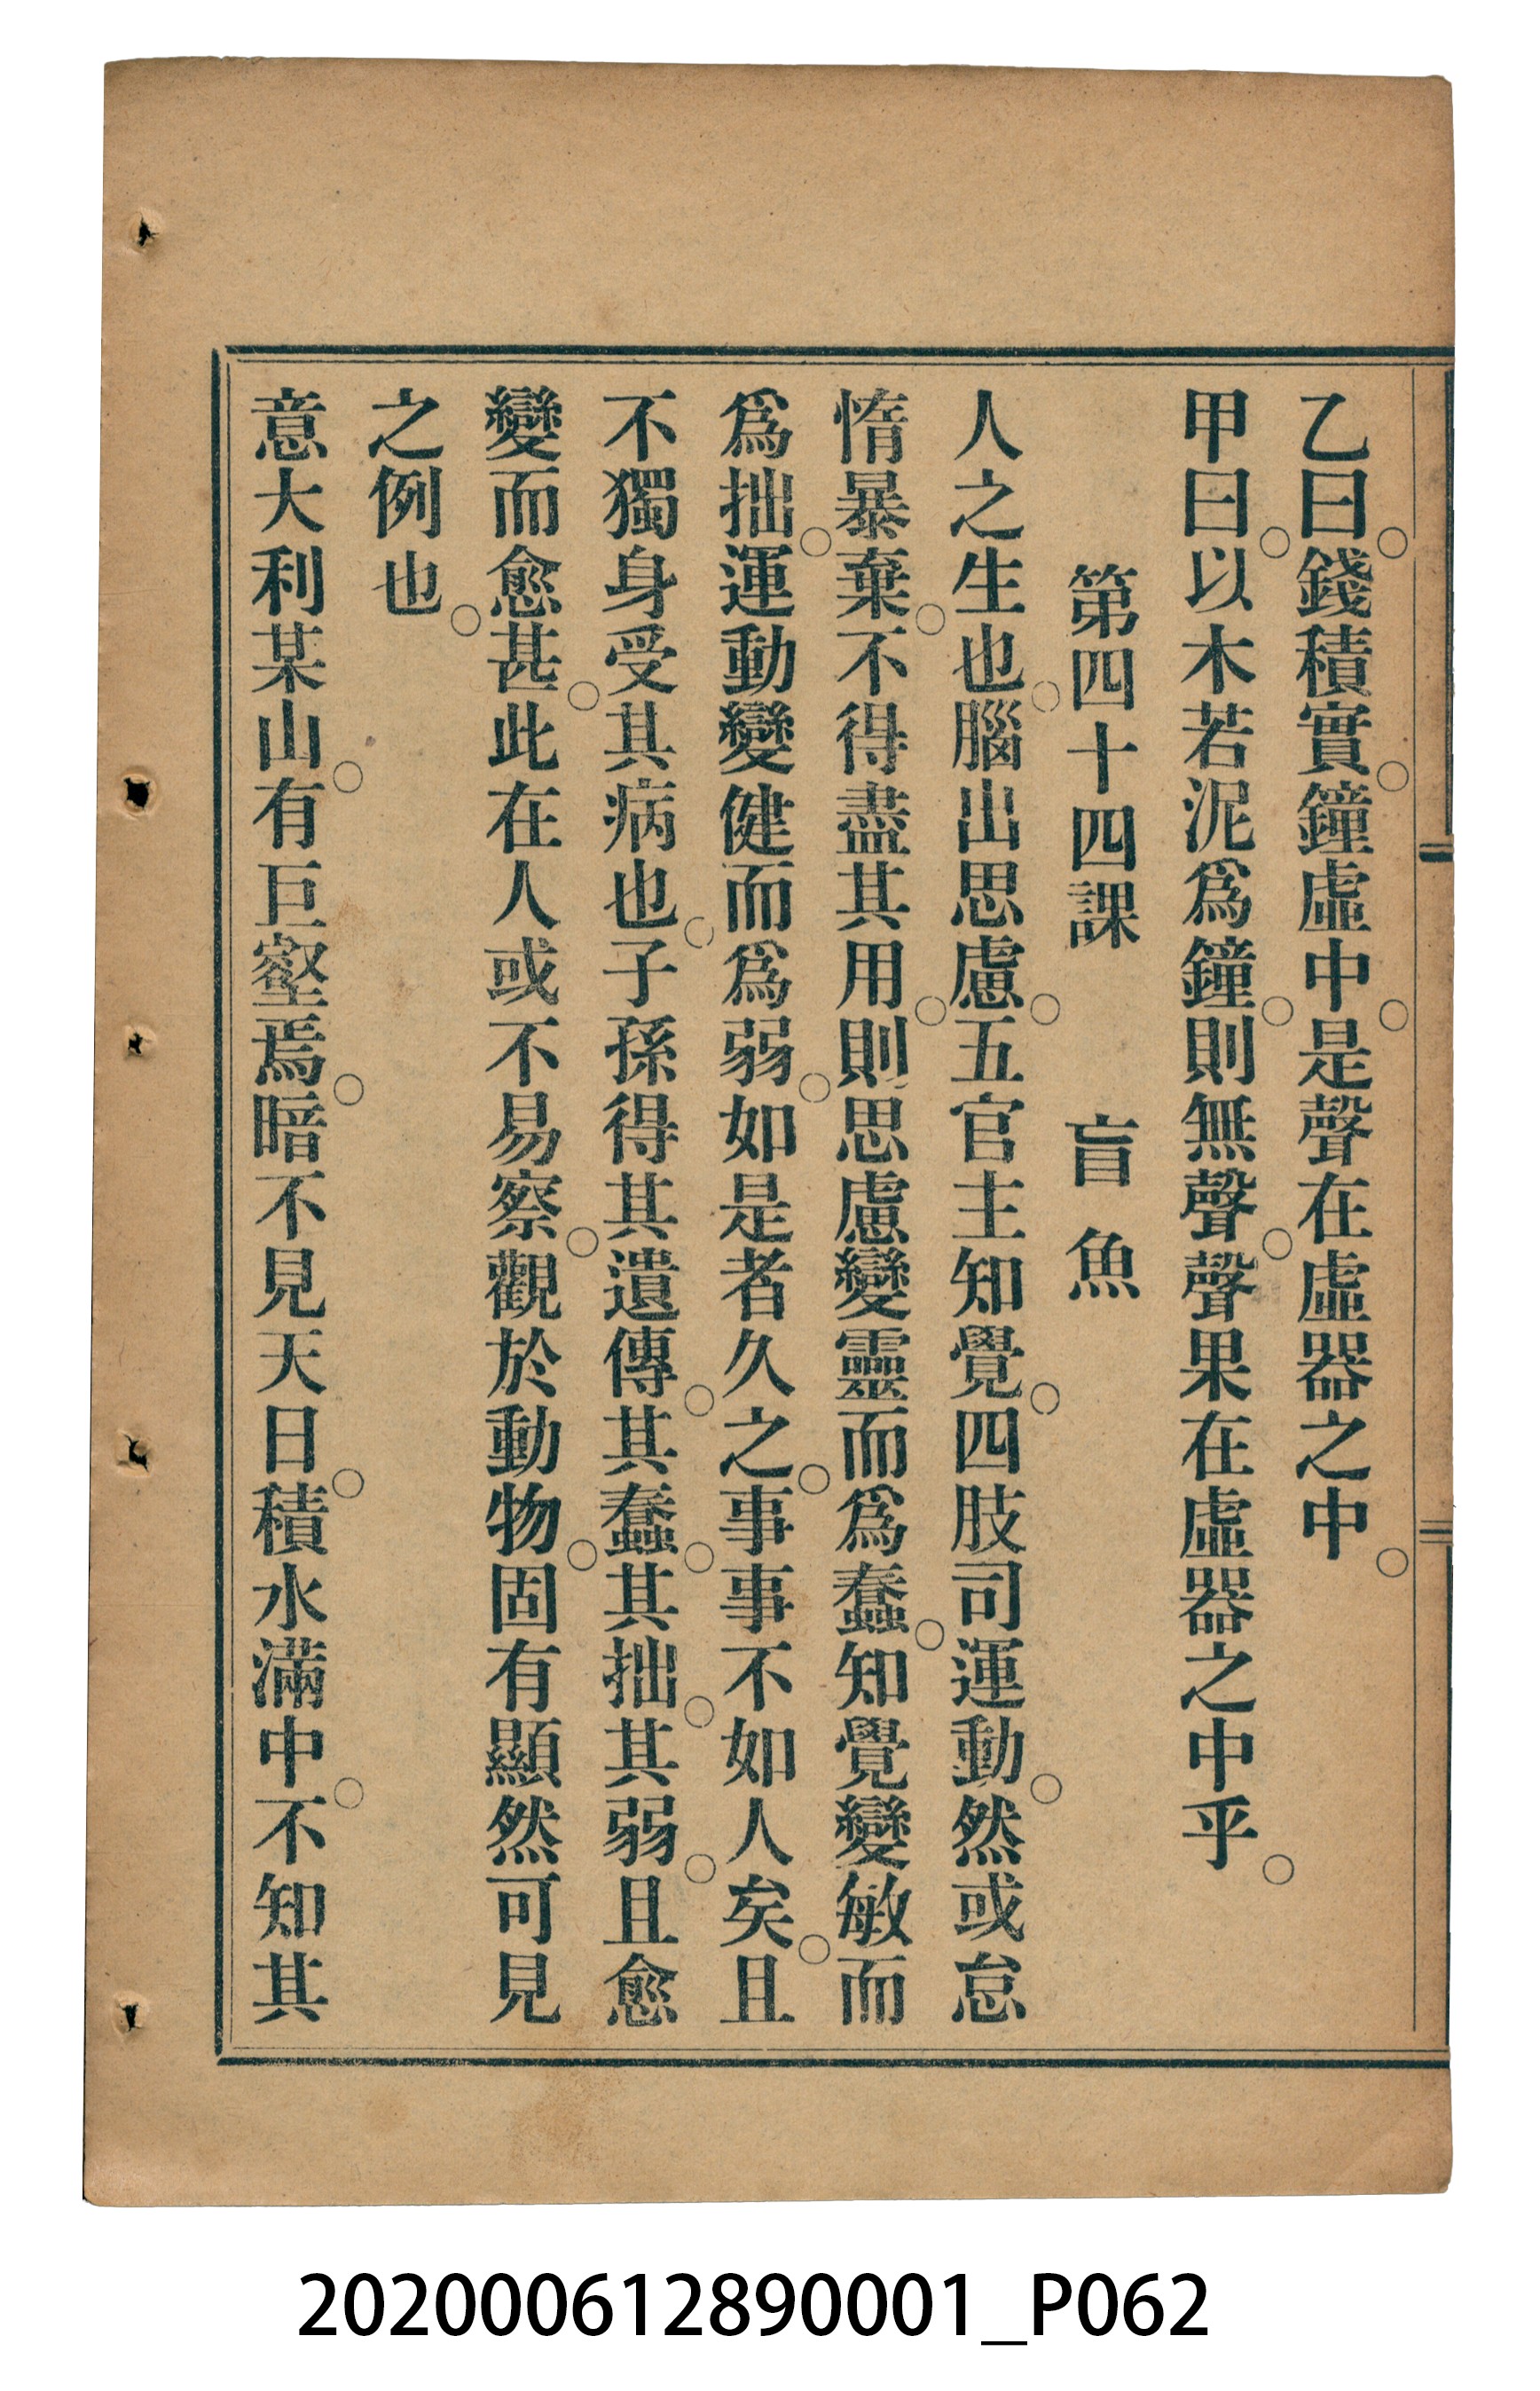 乙曰。錢積實。鐘虛中。是聲在虛器之中。
甲曰。以木若泥爲鐘。則無聲。聲果在虛器之中乎。
第四十四課　盲魚
人之生也。腦出思慮。五官主知覺。四肢司運動。然或怠
惰暴棄。不得盡其用。則思慮變靈而爲蠢。知覺變敏而
爲拙。運動變健而爲弱。如是者久之。事事不如人矣。且
不獨身受其病也。子孫得其遺傳。其蠢。其拙。其弱。且愈
變而愈甚。此在人或不易察。觀於動物。固有顯然可見
之例也。
意大利某山。有巨壑焉。暗不見天日。積水滿中。不知其
202000612890001_P062